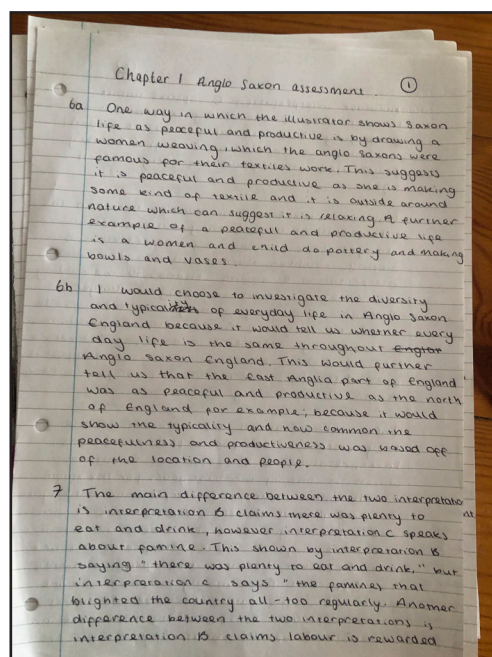 Chapter 1 Anglo Saxon assessment 1
6a One way in which the illustrator shows Saxon
life as peaceful and productive is by drawing a
women weaving, which the anglo saxons were
famous for their textiles work. This suggests
it is peaceful and productive as she is making
some kind of textile and it is outside around
nature which can suggest it is relaxing. A further
example of a peaceful and productive life
is a women and child do pottery and making
bowls and vases.
6b I would choose to investigate the diversity
and typicalities of everyday life in Anglo Saxon
England because it would tell us whether every
day life is the same throughout Englan
Anglo Saxon England. This would further
tell us that the East Anglia part of England
was as peaceful and productive as the north
of England for example, because it would
show the typicality and how common the
peacefulness and productiveness was based off
of the location and people.
7 The main difference between the two interpretation
is interpretation B claims there was plenty to
eat and drink, however interpretation C speaks
about famine. This shown by interpretation B
saying "there was plenty to eat and drink," but
interpretation C says "the famines that
blighted the country all-too regularly. Another
difference between the two interpretations is
interpretation B claims labour is rewarded